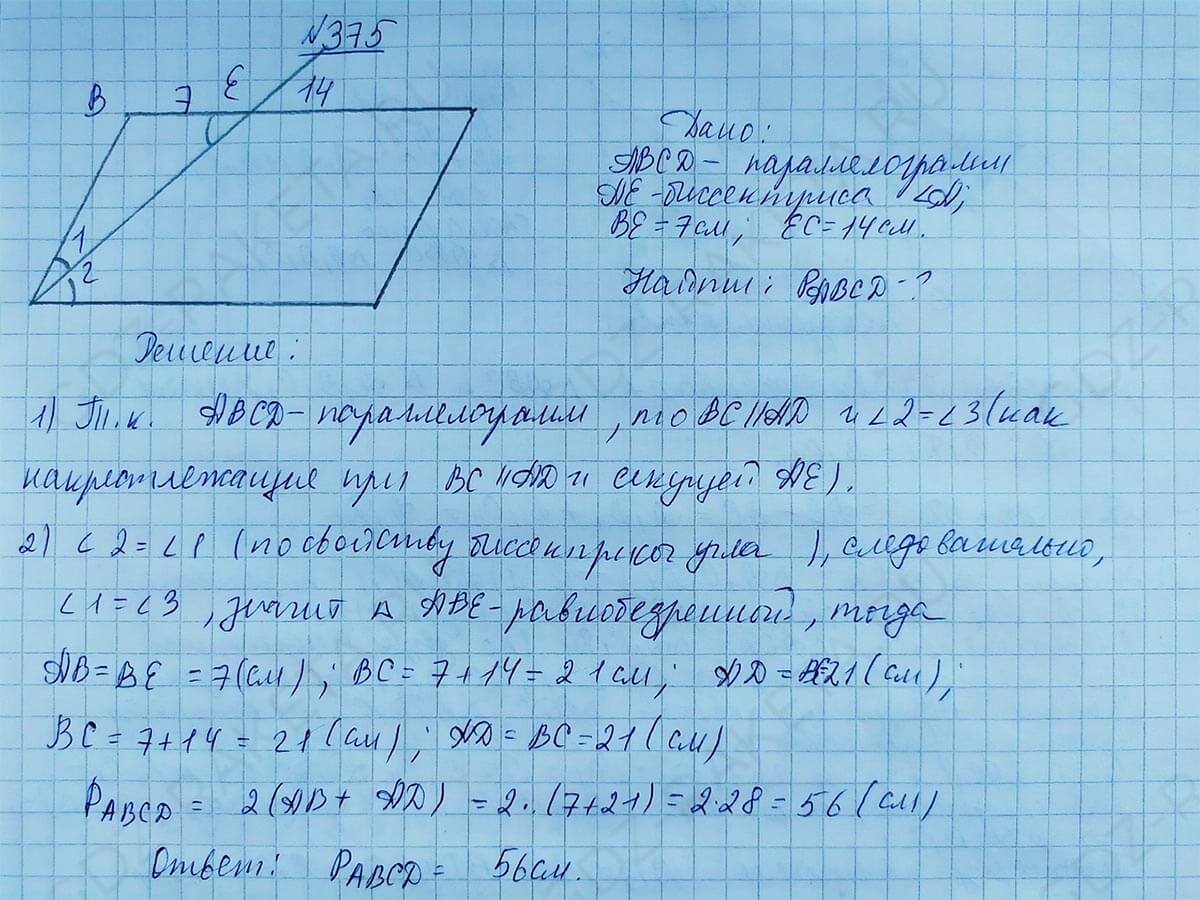 №375
B 7 E 14
1
2
Дано:
ABCD – параллелограмм
AE - биссектриса ∠A;
BE = 7см; EC = 14см.
Найти: PABCD - ?
Решение:
1) Т.к. ABCD – параллелограмм, то BC || AD и ∠2 = ∠3 (как
накрестлежащие при BC || AD и секущей AE).
2) ∠2 = ∠1 (по свойству биссектрисы угла), следовательно,
∠1 = ∠3, значит △ ABE - равнобедренный, тогда
AB = BE = 7(см); BC = 7+14 = 21см; AD = 21(см);
BC = 7+14 = 21(см); AD = BC = 21(см)
PABCD = 2(AB + AD) = 2·(7+21) = 2·28 = 56(см)
Ответ: PABCD = 56см.